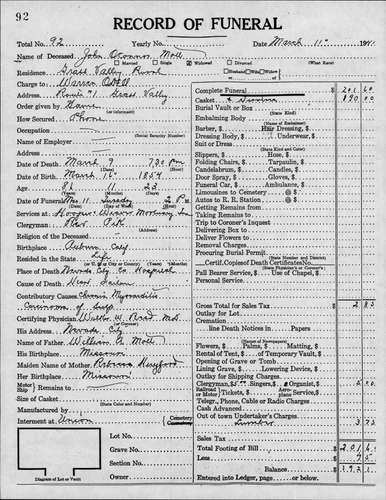 92
RECORD OF FUNERAL
Total No. 92 Yearly No. Date March 11 1941
Name of Deceased John O'Connor Moll
Married Single Widowed Divorced (What Race)
Residence Grass Valley Rural
Charge to Warren Odell
Address Route #1 Grass Valley
Order given by Same
How Secured Phone
Occupation
(Social Security Number)
Name of Employer
Address
Date of Death March 9 7:30 P.M.
Date of Birth March 16 1854
Age 86 11 23
(Years) (Months) (Days)
Date of Funeral Mar. 11 Tuesday 2 P.M.
Services at Hooper Weaver Mortuary
Clergyman Rev.
(Address)
Religion of the Deceased
Birthplace Auburn Calif
Resided in the State Life
Place of Death Nevada City Co. Hospital
Cause of Death Heart Failure
Contributory Causes Chronic Myocarditis
Carcinoma of Lip
Certifying Physician Walter W. Reed M.D.
(or Coroner)
His Address Nevada City
Name of Father William G. Moll
His Birthplace Missouri
Maiden Name of Mother Rebecca
Her Birthplace Missouri
Motor Ship Remains to
Size of Casket
(State Color and Number)
Manufactured by
Interment at Union Cemetery
Lot No.
Grave No.
Section No.
Owner
Diagram of Lot or Vault
Complete Funeral $ 201 60
Casket & Service 190 00
Burial Vault or Box
(State Kind)
Embalming Body
(Name of Embalmer)
Barber, $ Hair Dressing, $
Dressing Body, $ Underwear, $
Suit or Dress
(State Kind and Color)
Slippers, $ Hose, $
Folding Chairs, $ Tarpaulin, $
Candelabrum, $ Candles, $
Door Spray, $ Gloves, $
Funeral Car, $ Ambulance, $
Limousines to Cemetery @ $
Autos to R. R. Station @ $
Getting Remains from
Taking Remains to
Trip to Coroner's Inquest
Delivering Box to
Deliver Flowers to
Removal Charges
Procuring Burial Permit
(State Number and District)
Certif. Copies of Death Certificates No.
(State Physician's or Coroner's)
Pall Bearer Service, $ Use of Chapel, $
Personal Service
Gross Total for Sales Tax $ 2 85
Outlay for Lot
Cremation
line Death Notices in Papers
(Names of Newspapers)
Flowers, $ Palms, $ Matting, $
Rental of Tent, $ of Temporary Vault, $
Opening Grave or Tomb
Lining Grave, $ Lowering Device, $
Outlay for Shipping Charges
Clergyman, $5.00 Singers, $ Organist, $ 5 00
Railroad or Motor Tickets, $ Aeroplane Service, $
Telegr., Phone, Cable or Radio Charges
Cash Advanced
Out of town Undertaker's Charges
Sales Tax
Total Footing of Bill $
Less
Balance $
Entered into Ledger, page or below.